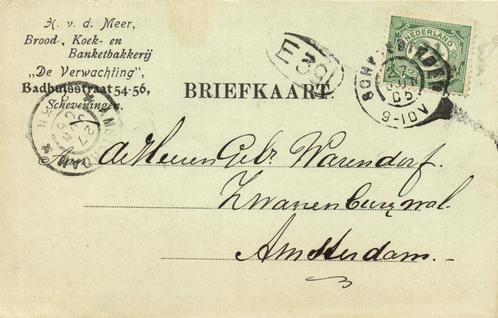 H. v. d. Meer,
Brood-, Koek- en
Banketbakkerij
„De Verwachting”,
Badhuisstraat 54-56,
Scheveningen.
E39
NEDERLAND
27
05
9-10V
BRIEFKAART.
Aan de Heeren Gebr. Warendorf.
Zwanenburgwal.
Amsterdam.